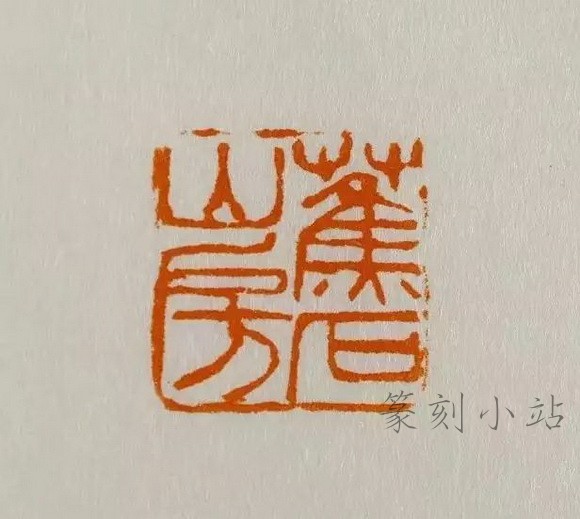 蕉石
山房
篆刻小站